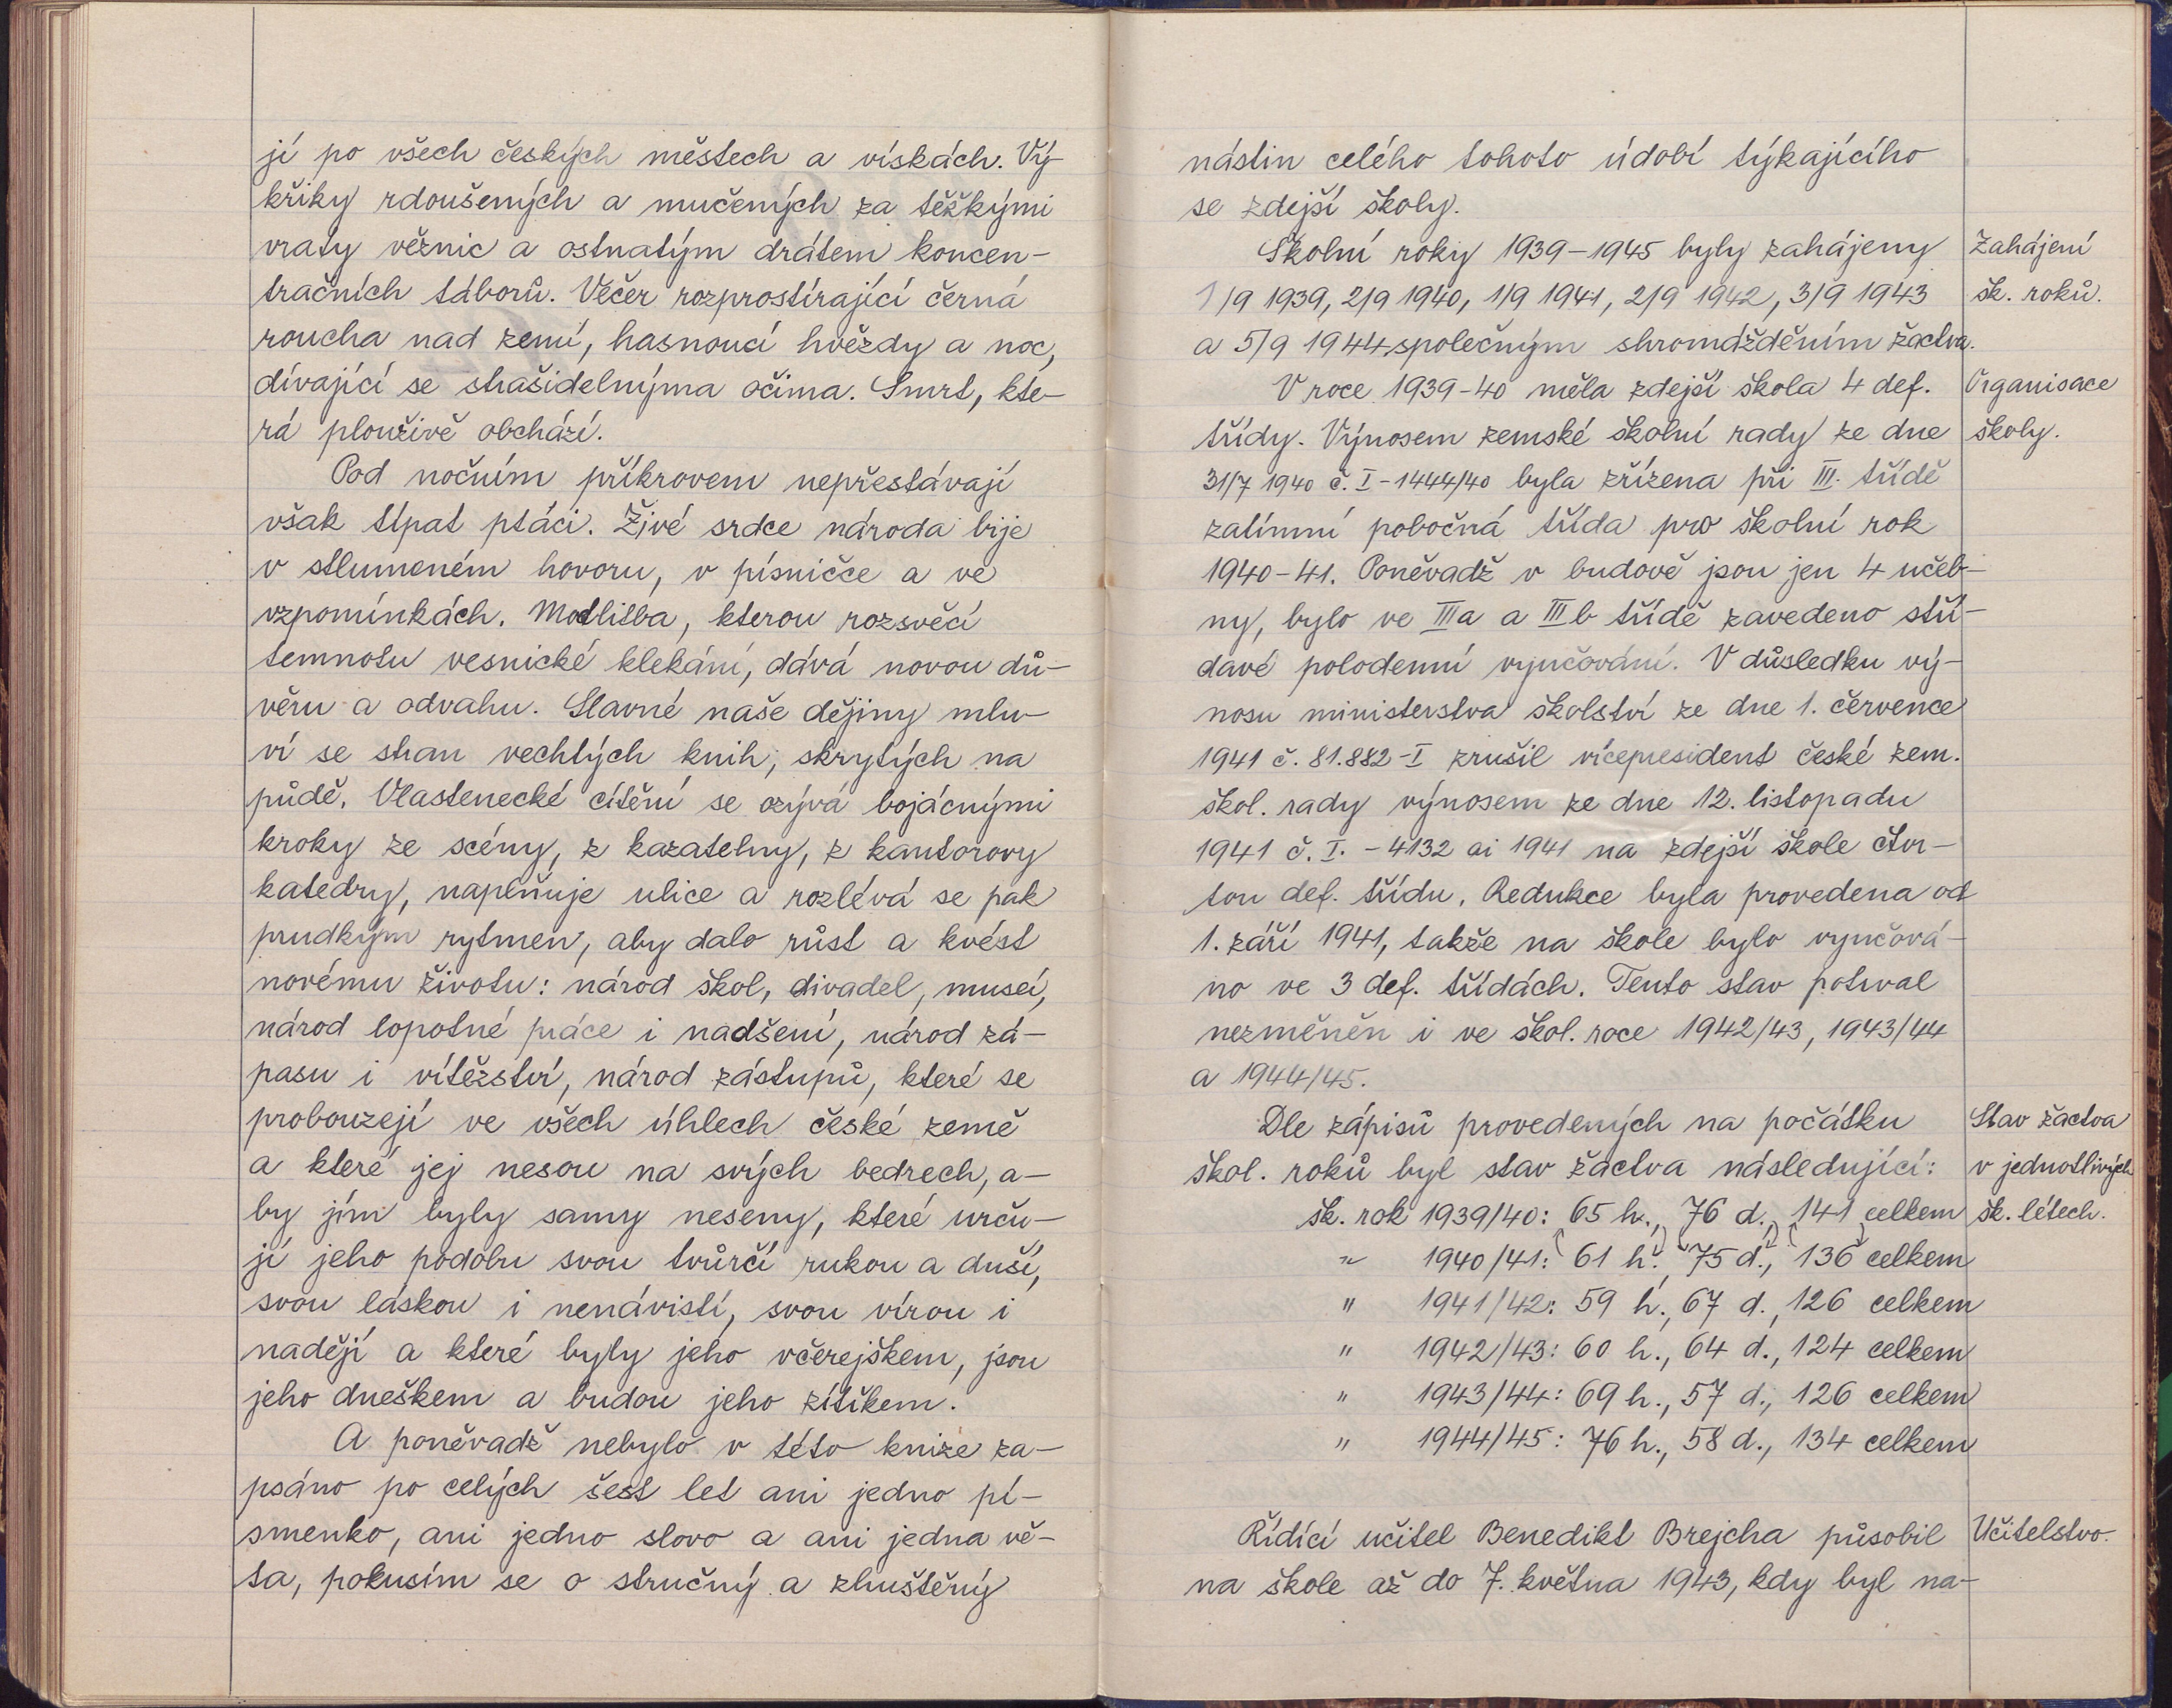 jí po všech českých městech a vískách. Vý-
křiky rdoušených a mučených za těžkými
vraty věznic a ostnatým drátem koncen-
tračních táborů. Večer rozprostírající černá
roucha nad zemí, hasnoucí hvězdy a noc,
dívající se strašidelnýma očima. Smrt, kte-
rá plouživě obchází.
Pod nočním příkrovem nepřestávají
však típat ptáci. Živé srdce národa bije
v stlumeném hovoru, v písničce a ve
vzpomínkách. Modlitba, kterou rozsvěcí
temnotu vesnické klekání, dává novou dů-
věru a odvahu. Slavné naše dějiny mlu-
ví se stran vechtých knih, skrytých na
půdě. Vlastenecké cítění se ozývá bojácnými
kroky ze scény, z kazatelny, z kantorovy
katedry, naplňuje ulice a rozlévá se pak
prudkým rytmen, aby dalo růst a kvést
novému životu: národ škol, divadel, museí,
národ lopotné práce i nadšení, národ zá-
pasu i vítězství, národ zástupů, které se
probouzejí ve všech úhlech české země
a které jej nesou na svých bedrech, a-
by jím byly samy neseny, které urču-
jí jeho podobu svou tvůrčí rukou a duší,
svou láskou i nenávistí, svou vírou i
nadějí a které byly jeho včerejškem, jsou
jeho dneškem a budou jeho zítřkem.
A poněvadž nebylo v této knize za-
psáno po celých šest let ani jedno pí-
smenko, ani jedno slovo a ani jedna vě-
ta, pokusím se o stručný a zhuštěný
nástin celého tohoto údobí týkajícího
se zdejší školy.
Školní roky 1939-1945 byly zahájeny
Zahájení
1/9 1939, 2/9 1940, 1/9 1941, 2/9 1942, 3/9 1943
šk. roků.
a 5/9 1944 společným shromážděním žactva.
V roce 1939-40 měla zdejší škola 4 def.
Organisace
třídy. Výnosem zemské školní rady ze dne
školy.
31/7 1940 č. I-1444/40 byla zřízena při III. třídě
zatímní pobočná třída pro školní rok
1940-41. Poněvadž v budově jsou jen 4 učeb-
ny, bylo ve IIIa a IIIb třídě zavedeno stří-
davé polodenní vyučování. V důsledku vý-
nosu ministerstva školství ze dne 1. července
1941 č. 81.882-I zrušil vícepresident české zem.
škol. rady výnosem ze dne 12. listopadu
1941 č. I. - 4132 ai 1941 na zdejší škole čtvr-
tou def. třídu. Redukce byla provedena od
1. září 1941, takže na škole bylo vyučová-
no ve 3 def. třídách. Tento stav potrval
nezměněn i ve škol. roce 1942/43, 1943/44
a 1944/45.
Dle zápisů provedených na počátku
Stav žactva
škol. roků byl stav žactva následující:
v jednotlivých
šk. rok 1939/40: 65 h., 76 d., 141 celkem
šk. létech.
" 1940/41: 61 h., 75 d., 136 celkem
" 1941/42: 59 h., 67 d., 126 celkem
" 1942/43: 60 h., 64 d., 124 celkem
" 1943/44: 69 h., 57 d., 126 celkem
" 1944/45: 76 h., 58 d., 134 celkem
Řídící učitel Benedikt Brejcha působil
Učitelstvo.
na škole až do 7. května 1943, kdy byl na-